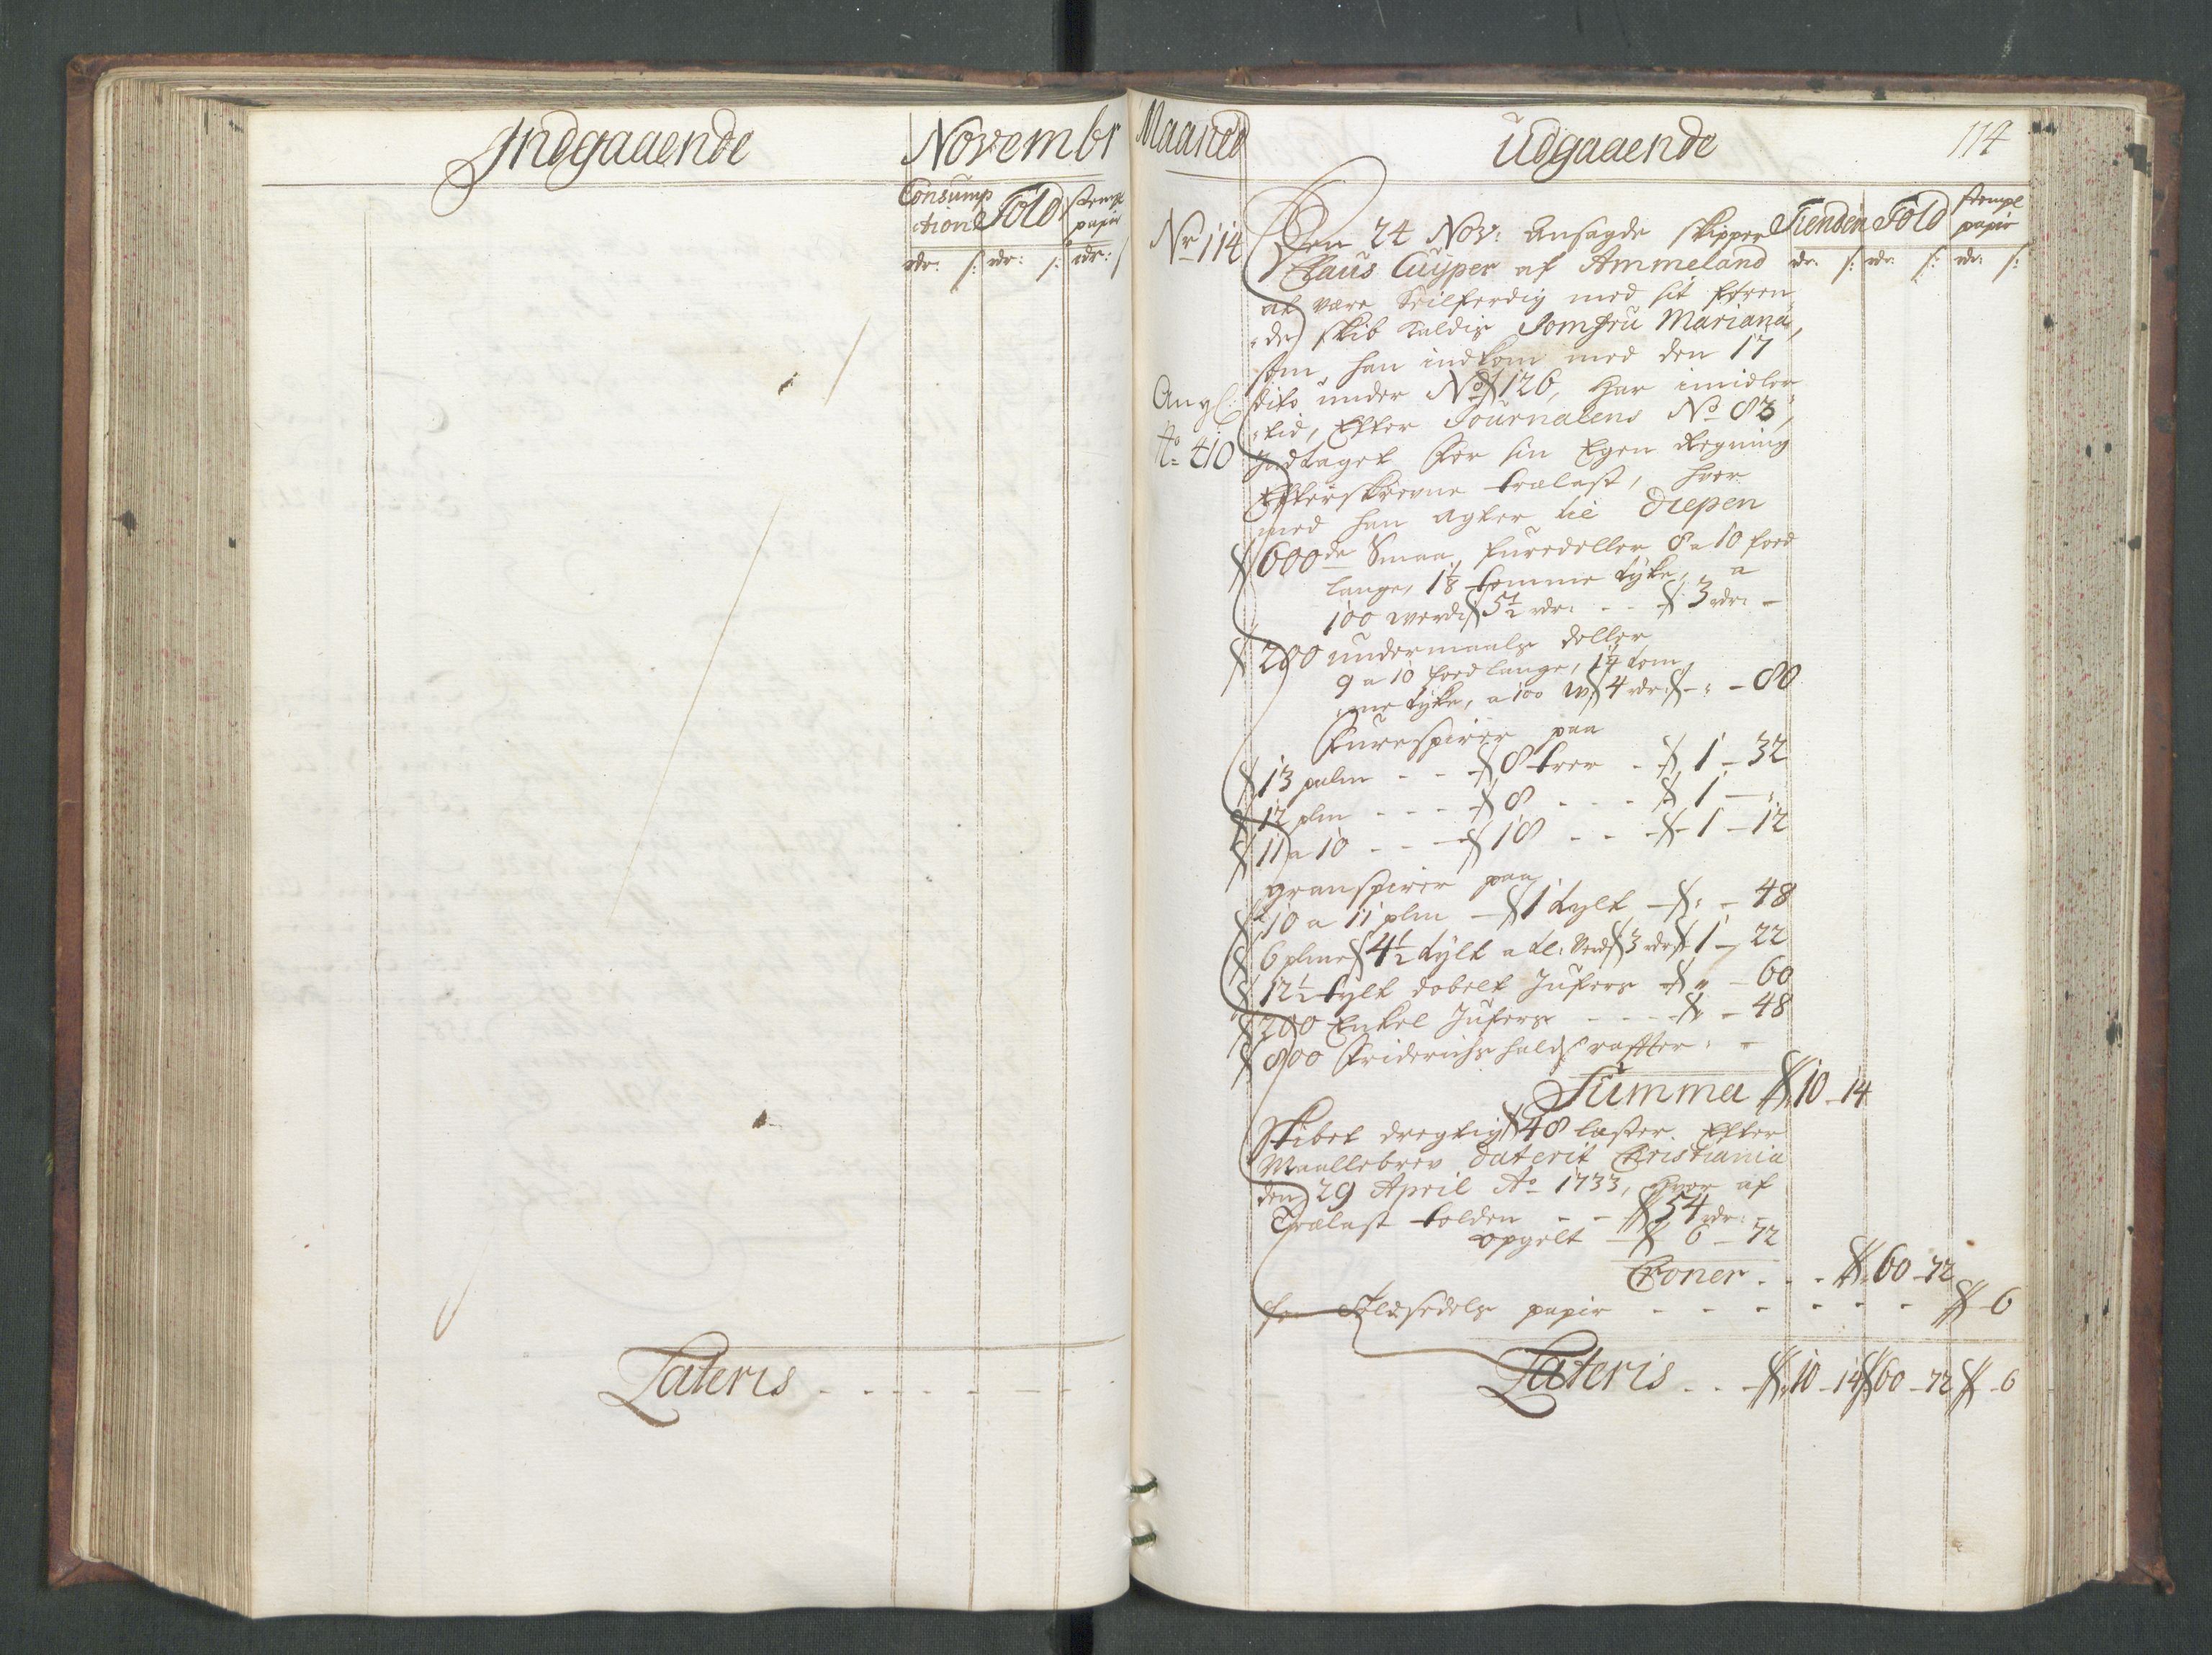 Indgaaende
Novembr
Consump
ction Told stempl
papir
rdr: s: rdr: s: rdr: s
Lateris
Maaned
udgaaende
114
Tienden Told stempl
papir
rdr: s: rdr: s: rdr: s:
Nr 114
Den 24 Nov: Ansagde skipper
Claus Cuyper af Ammeland
at være Seilferdig med sit føren
de skib kaldis Jomfru Mariana,
som han indkom med den 17
dito under No 126, Har imidler
tid, Efter Journalens No 83,
Angl:
No 410
Indtaget for sin Egen Regning
Efterskrevne trælast, hvor
med han agter til Diepen
600de Smaa furedeller 8 a 10 foed
lange, 1 1/8 tomme tyke, a
100 werdi 5 1/2 rdr: - - 3 rdr: -
200 undermaals deller,
9 a 10 foed lange, 1 1/4 tom
me tyke, a 100 w 4 rdr: - : - 80
Furespirer paa
13 palm - - 8 trer - 1 - 32
12 plm - - - 8 - - - 1 - :
11 a 10 - - - 18 - - - 1 - 12
granspirer paa
10 a 11 plm - 1 tylt - : - 48
6 plme 4 1/2 tylt a tl: Verd 3 rdr 1 - 22
12 1/2 tylt dobelt Jufers - " - 60
200 Enkel Jufers - - - - - 48
800 Friderichshalds rafter : -
Summa 10 - 14
Skibet dregtig 48 læster. Efter
Maallebrev daterit Christiania
den 29 April Ao 1733, Hvor af
Trælast tolden - - 54 rdr: -
opgelt - 6 - 72
Croner - - - 60 - 72
for Toldsedels papir - - - - - - - 6
Lateris - - - 10 - 14 60 - 72 - 6